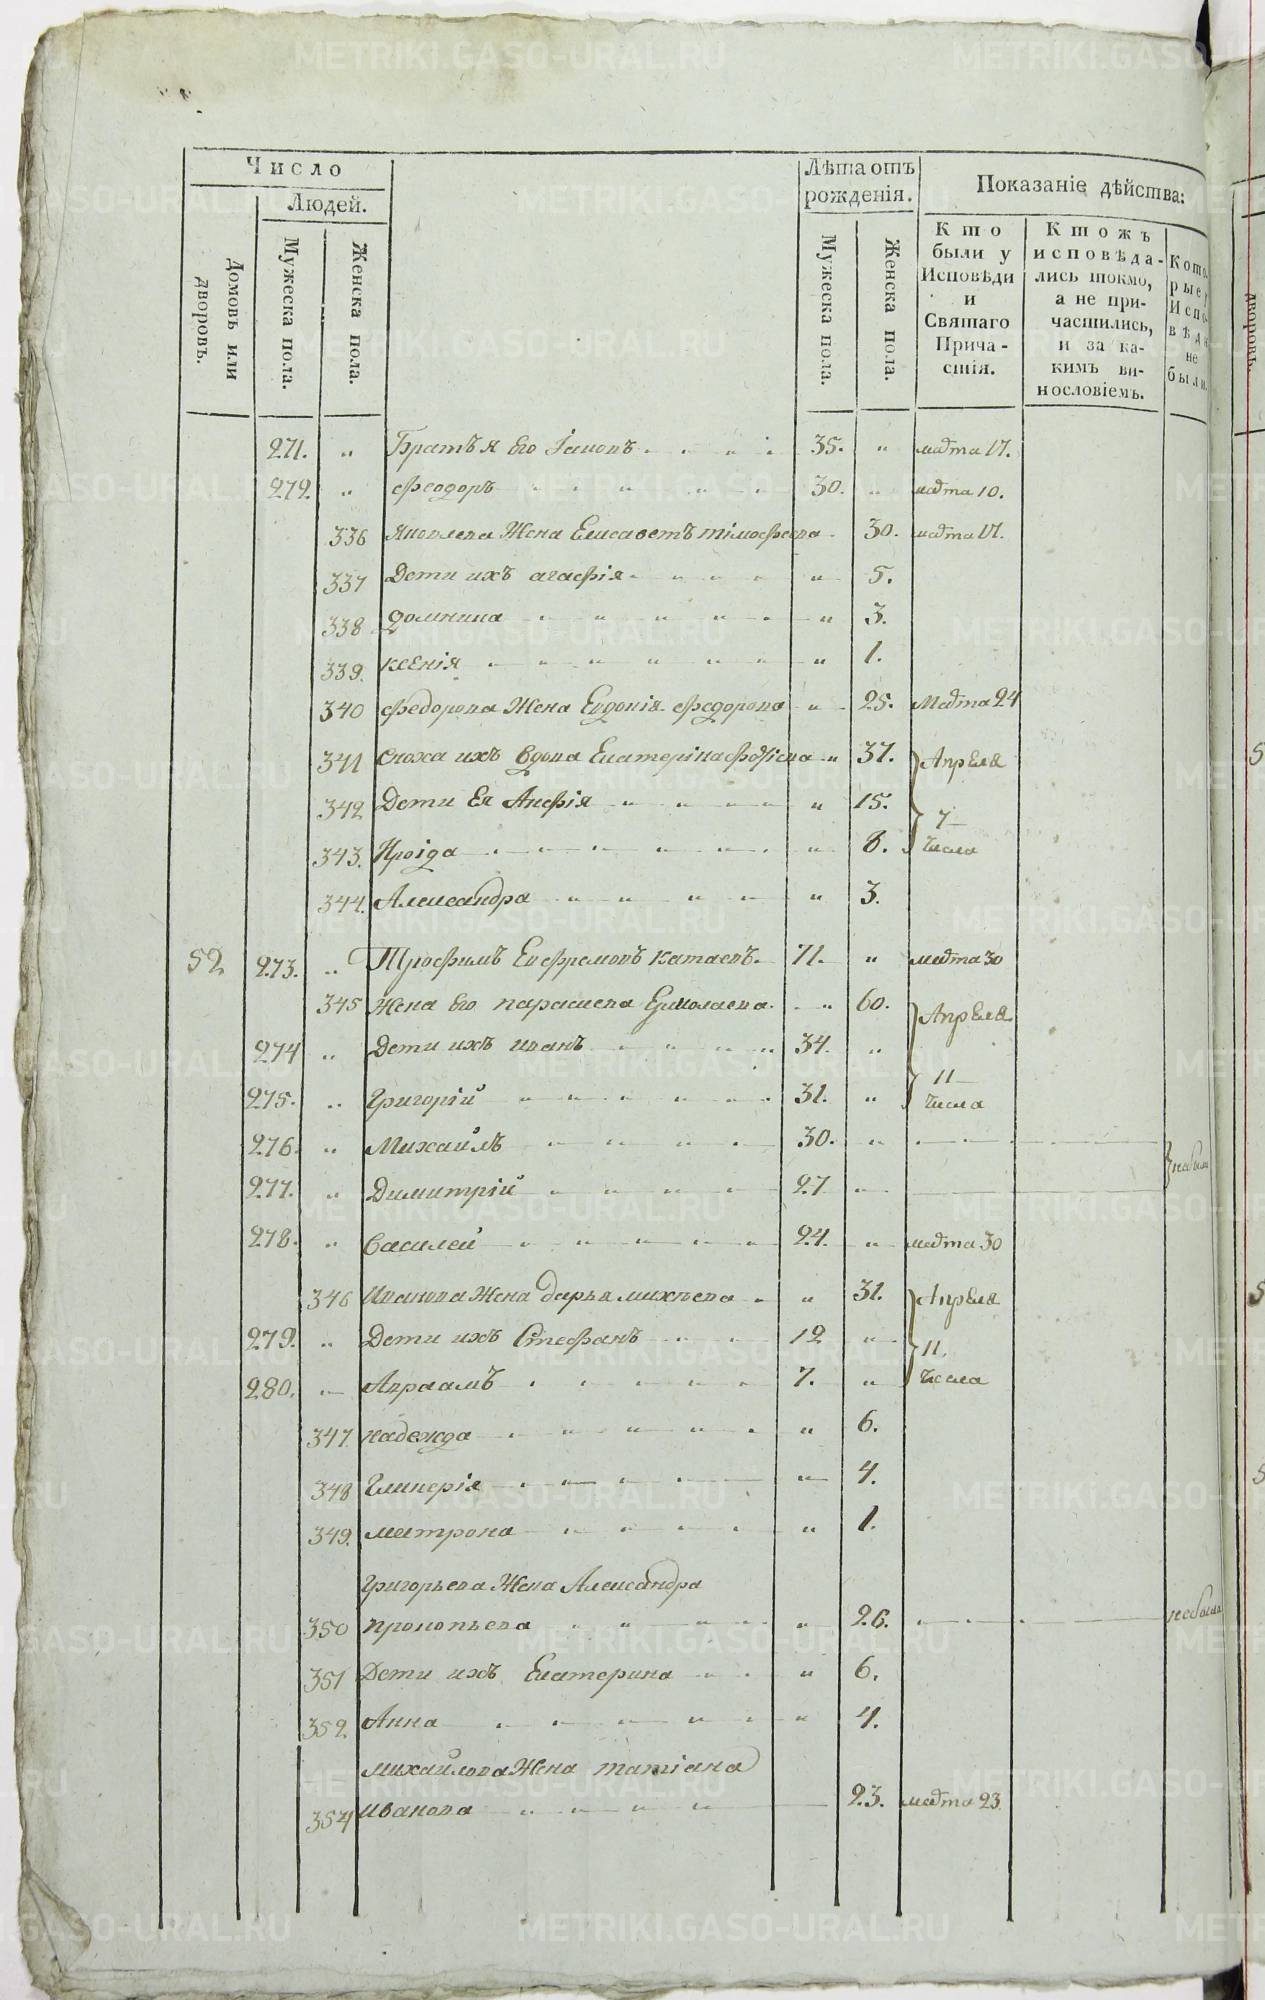 Число
Людей.
Домовъ или дворовъ.
Мужеска пола.
Женска пола.
Лѣта отъ рожденія.
Мужеска пола.
Женска пола.
Показаніе дѣйства:
Кто были у Исповѣди и Святаго Причастія.
Ктожъ исповѣдались токмо, а не причастились, и за какимъ винословіемъ.
Которые у Исповѣди не были.
271. „ Братья его Іаковъ 35. „ марта 17.
272. „ Феодоръ 30. „ марта 10.
336 Яковлева Жена Елисаветъ тімофеева 30. марта 17.
337 Дети ихъ агафія „ 5.
338 Домника „ 3.
339. ксенія „ 1.
340 Федорова Жена Евдокія федорова „ 25. Марта 24
341 сноха ихъ вдова Екатеріна „ 37. Апреля
342 Дети Ея Анфія „ 15. 7
343. Ироіда „ 8. числа
344. Александра „ 3.
52 273. „ Трофимъ Евфремовъ катаевъ. 71. „ марта 30
345 Жена его параскева Ермолаева „ 60. Апреля
274 „ Дети ихъ иванъ 34. „ 11
275. „ Григорій 31. „ числа
276. „ Михаилъ 30. „
277. „ Димитрій 27 „ небыли
278. „ василей 24. „ марта 30
346 Иванова Жена дарья михеева „ 31. Апреля
279. „ Дети ихъ Стефанъ 12 „ 11.
280. „ Авраамъ 7. „ числа
347 надежда „ 6.
348 Гликерія „ 4.
349. матрона „ 1.
Григорьева Жена Александра
350 прокопьева „ 26. небыла
351 Дети ихъ Екатерина „ 6.
352 Анна „ 4.
михайлова Жена татіана
354 иванова 23. марта 23
METRIKI.GASO-URAL.RU